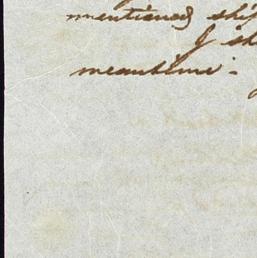 mentioned ship
I sh
meantime -